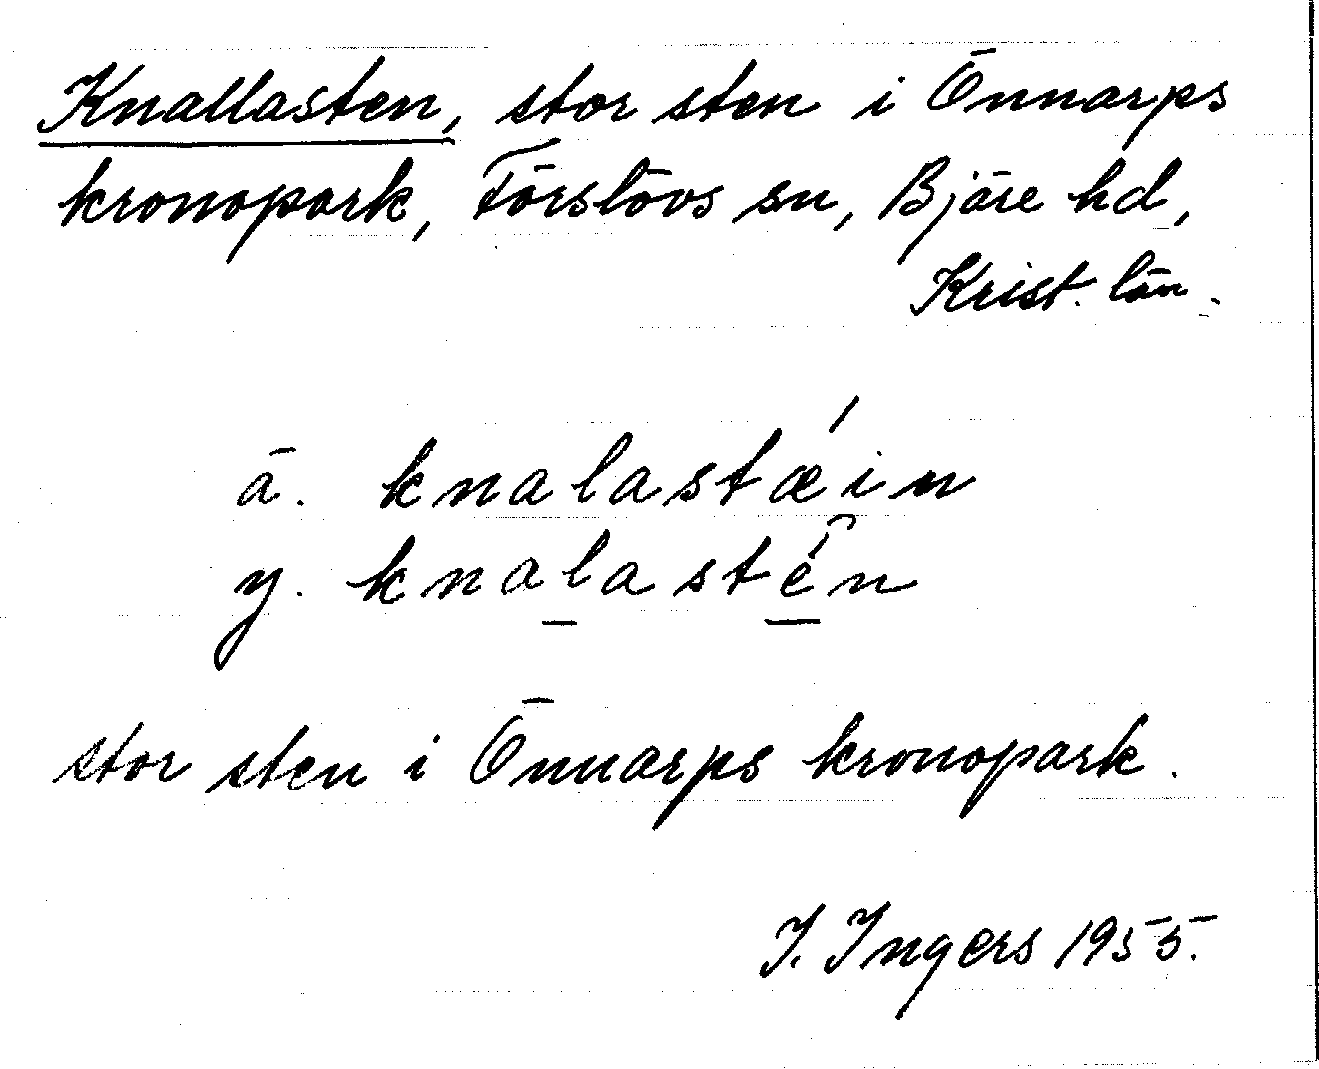 Knallasten, stor sten i Önnarps
kronopark, Förslövs sn, Bjäre hd,
Krist. län.
ä. knalastǽin
y. knalastén
stor sten i Önnarps kronopark.
I. Ingers 1955.